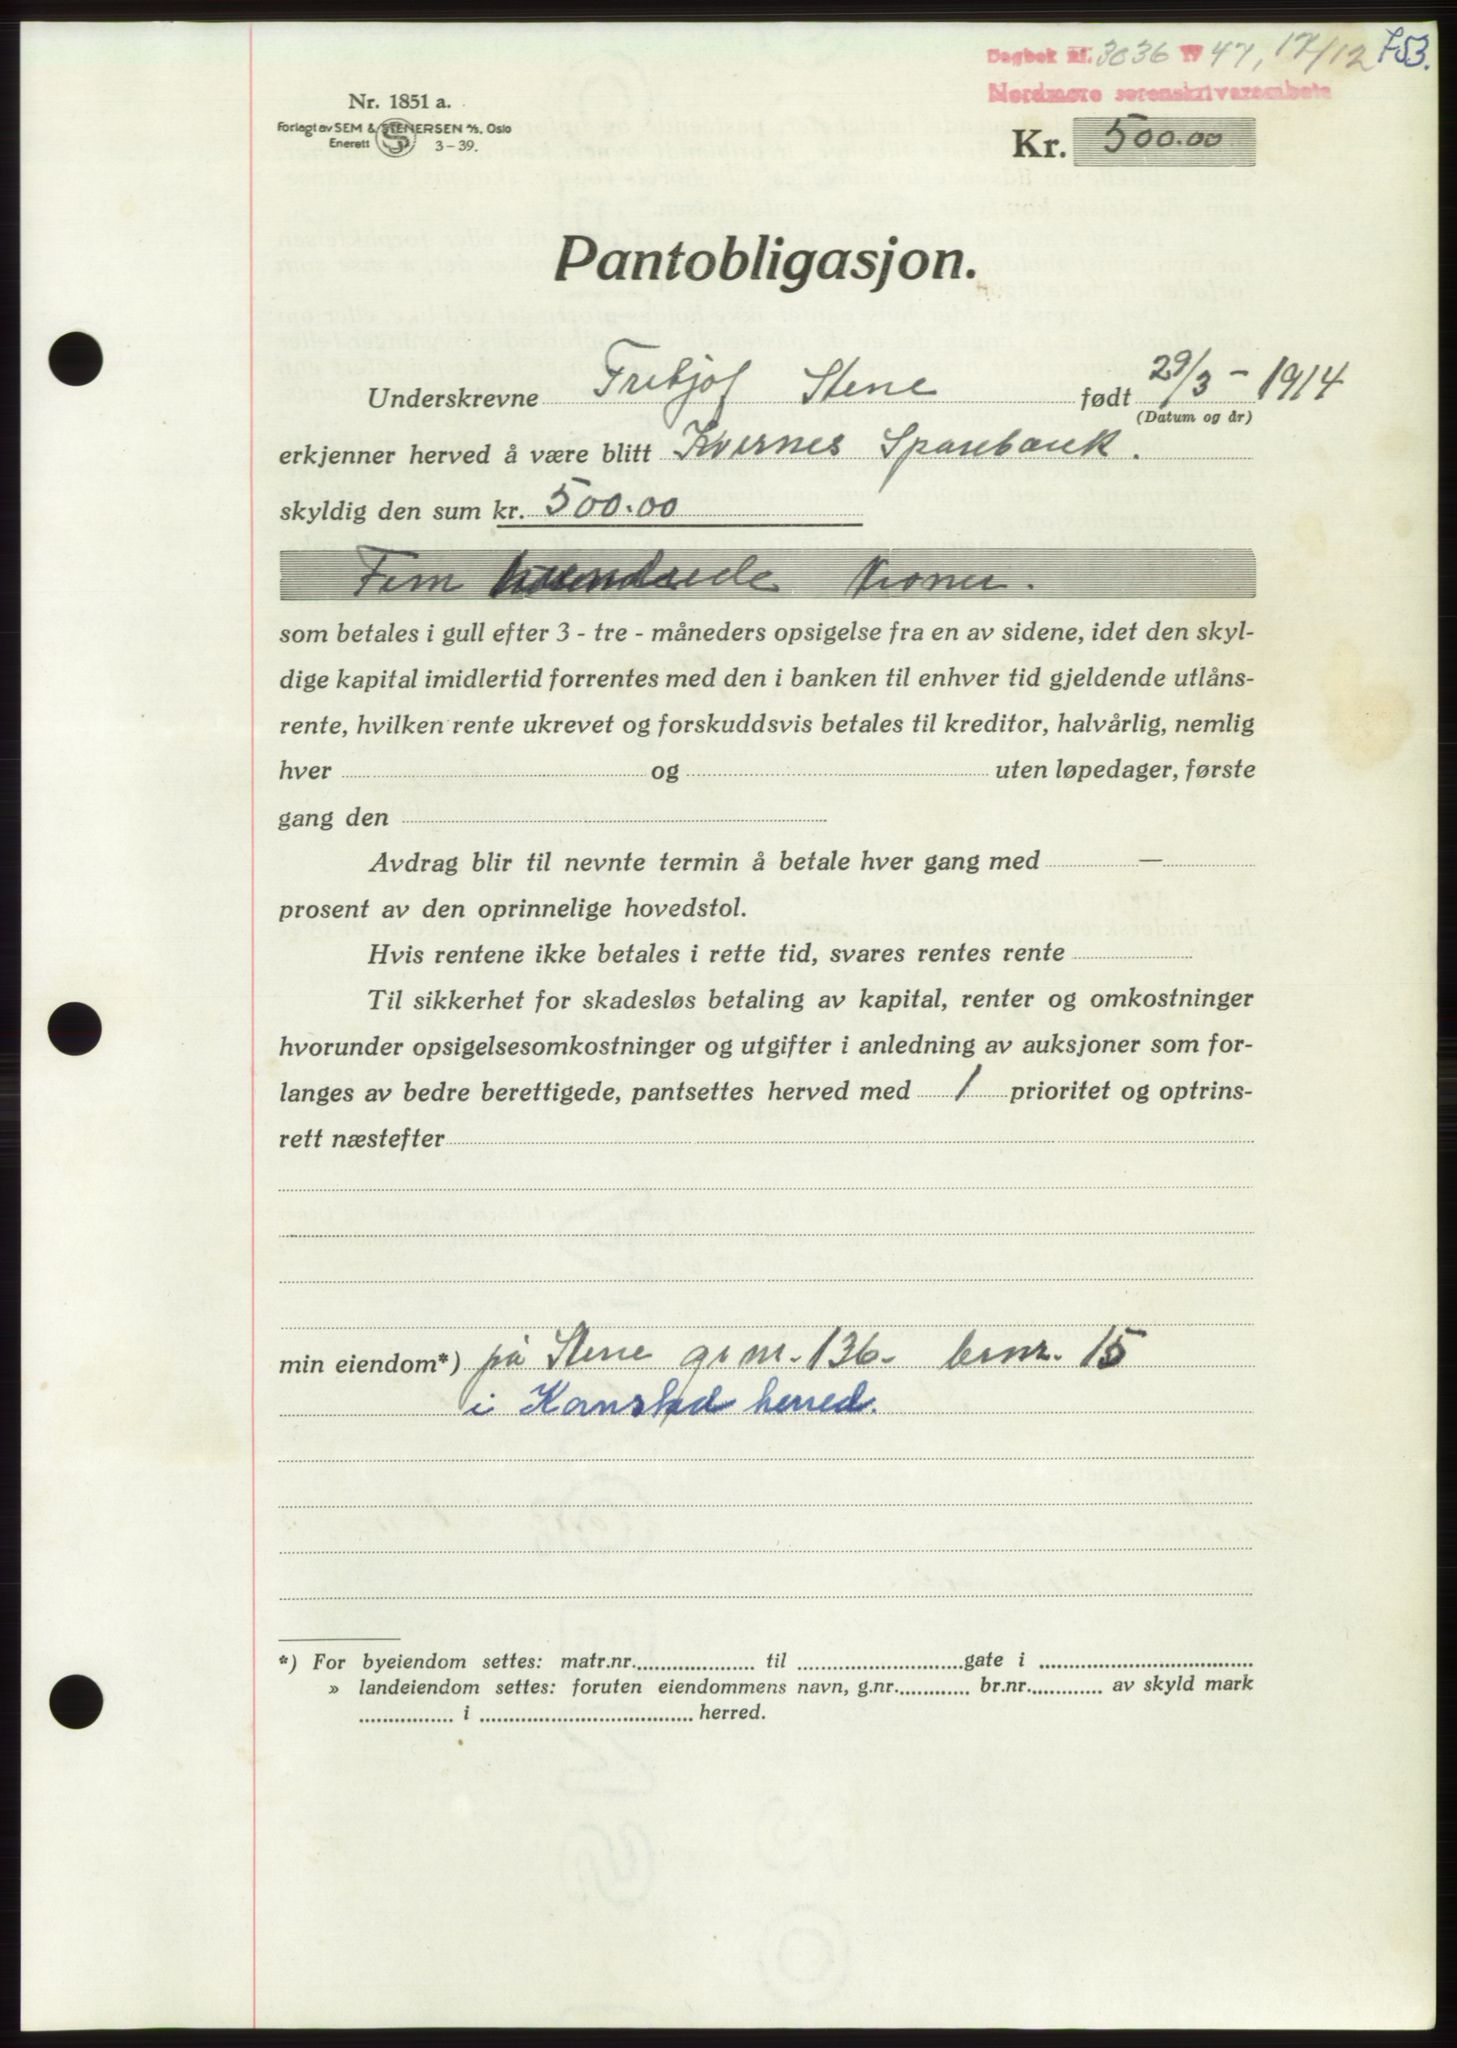 753.
Dagbok nr. 3036 19 47, 17/12
Nordmøre sorenskriverembete
Nr. 1851 a.
Forlagt av SEM & STENERSEN A/S, Oslo
Enerett 3-39.
Kr. 500.00
Pantobligasjon.
Underskrevne Fritjof Stene født 29/3 - 1914
(Datum og år)
erkjenner herved å være blitt Kvernes Sparebank.
skyldig den sum kr. 500.00
Fem hundrede Kroner.
som betales i gull efter 3 - tre - måneders opsigelse fra en av sidene, idet den skyl-
dige kapital imidlertid forrentes med den i banken til enhver tid gjeldende utlåns-
rente, hvilken rente ukrevet og forskuddsvis betales til kreditor, halvårlig, nemlig
hver og uten løpedager, første
gang den
Avdrag blir til nevnte termin å betale hver gang med —
prosent av den oprinnelige hovedstol.
Hvis rentene ikke betales i rette tid, svares rentes rente
Til sikkerhet for skadesløs betaling av kapital, renter og omkostninger
hvorunder opsigelsesomkostninger og utgifter i anledning av auksjoner som for-
langes av bedre berettigede, pantsettes herved med 1 prioritet og optrins-
rett næstefter
min eiendom*) på Stene gr nr. 136. brnr. 15
i Kornstad herred.
*) For byeiendom settes: matr.nr. til gate i
» landeiendom settes: foruten eiendommens navn, g.nr. br.nr. av skyld mark
i herred.